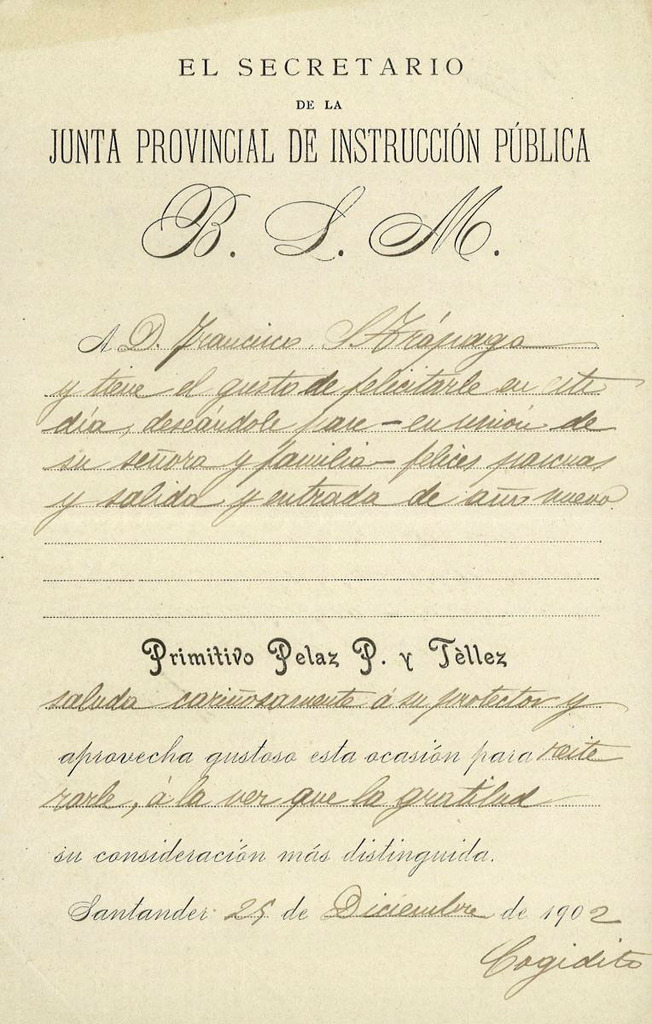 EL SECRETARIO
DE LA
JUNTA PROVINCIAL DE INSTRUCCIÓN PÚBLICA
B. L. M.
A D. Francisco
y tiene el gusto de felicitarle en este
día, deseándole pase - en unión de
su señora y familia - felices pascuas
y salida y entrada de año nuevo
Primitivo Pelaz P. y Tèllez
saluda cariñosamente á su protector y
aprovecha gustoso esta ocasión para reite
rarle, á la vez que la gratitud
su consideración más distinguida.
Santander 25 de Diciembre de 1902